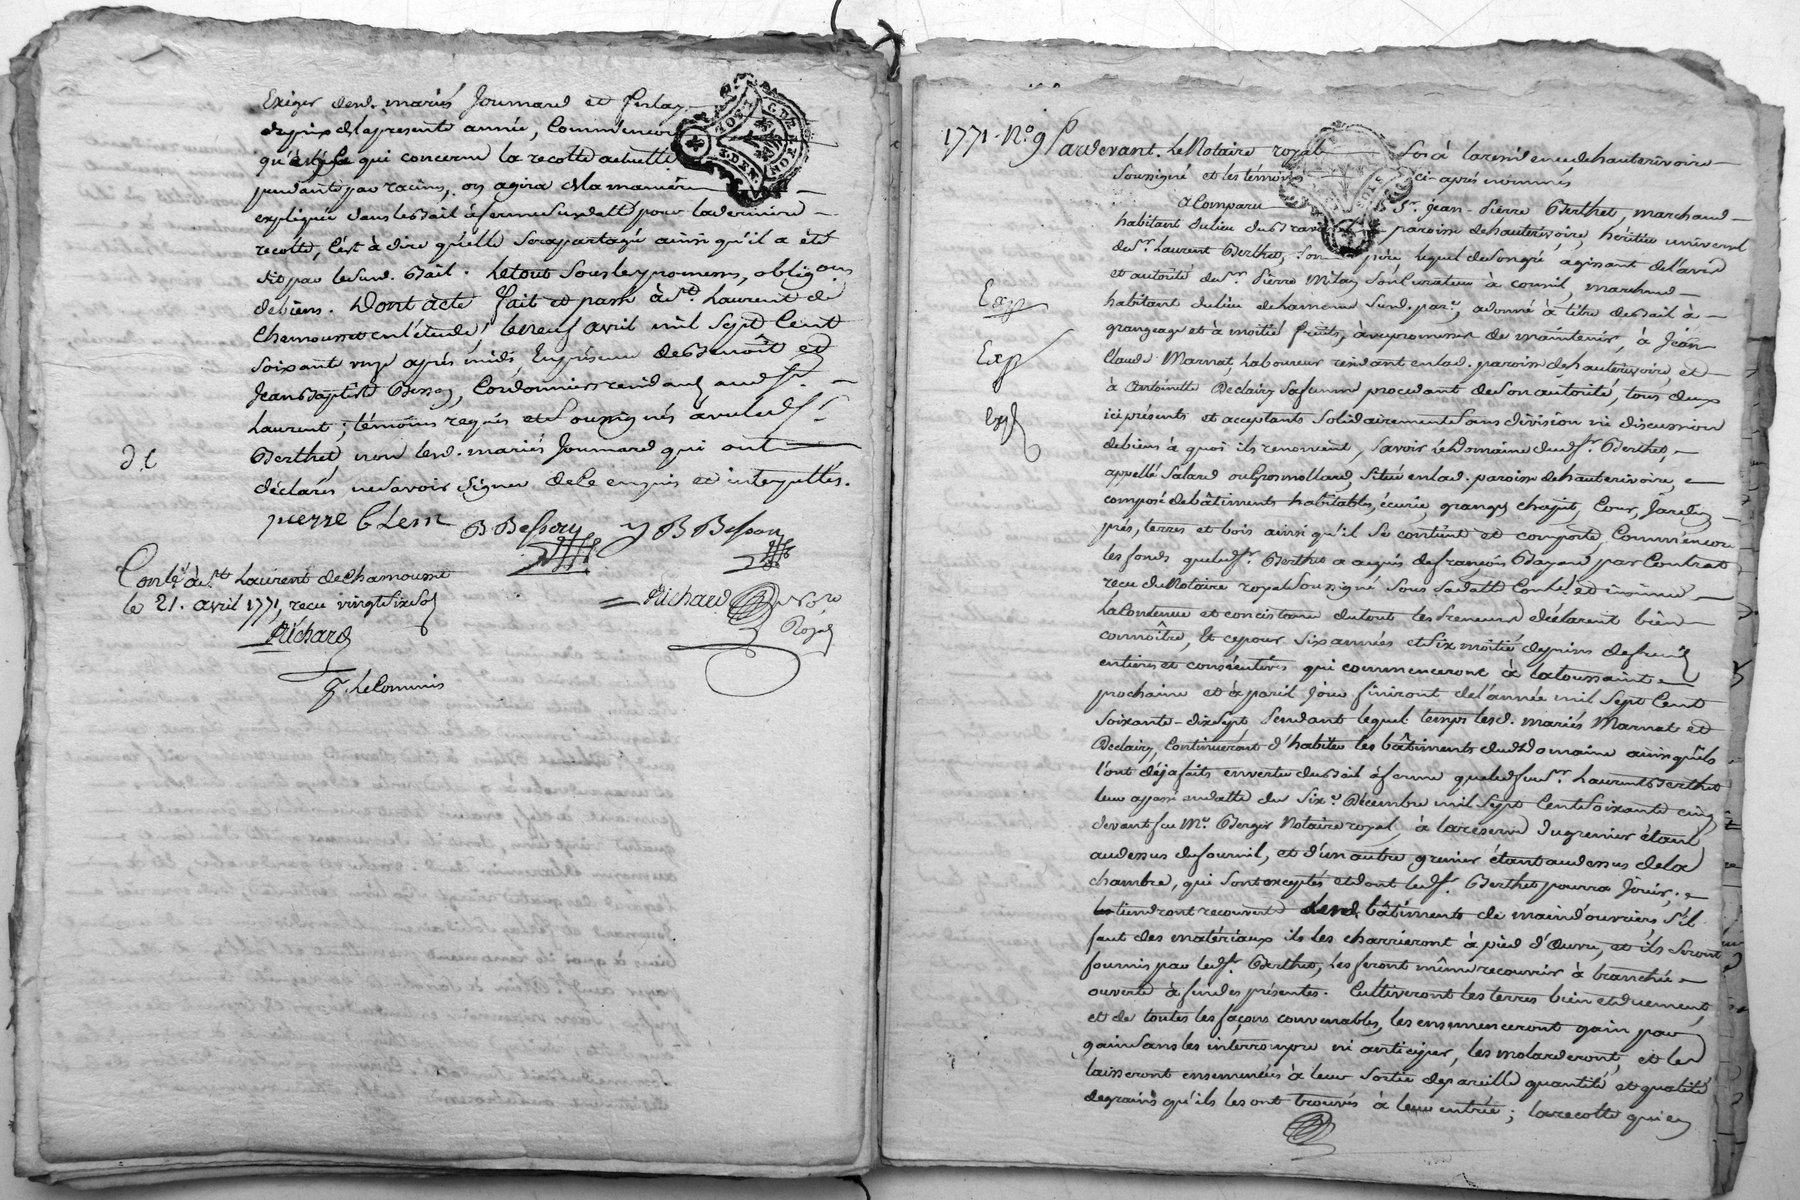 Exiger desd. mariés Joumard et Ferlay
depuis de la présente année, Commencer
qu'à ce qui concerne la recolte actuelle
pendante par racines, on agira de la manière
expliquée dans le bail à ferme susdatté pour la derniere
recolte, c'est à dire qu'elle sera partagée ainsi qu'il a été
dit par le susd. Bail. Le tout sous les promesses, obligaons
de biens. Dont acte fait et passé à St. Laurent de
Chamousset en l'étude, le neuf avril mil sept Cent
soixante onze après midi, En présence de Benoît et
Jean Baptiste Besson, Cordonniers residants aud. St.
Laurent, témoins requis et Soussignés avec led. Sr.
Berthet non lesd. mariés Joumard qui ont
déclarés ne savoir signer de ce enquis et interpellés.
d. C
pierre B Besson J B Besson
Conlé. à St. Laurent de Chamousset
le 21. avril 1771, reçu vingt six sols
Richard Nore
Royal
Richard
p. le Commis
1771. No. 9 Pardevant. Le Notaire royal Sr. à la residence de hauterivoire
Soussigné et les témoins ci-après nommés
A Comparu Sr. Jean-Pierre Berthet, marchand
habitant du lieu du paroisse de hauterivoire, héritier universel
de Sr. Laurent Berthet, son père lequel de son gré, agissant de l'avis
et autorité de Sr. Pierre Milan son Curateur à conseil, marchand
habitant du lieu de hamena susd. par., a donné à titre de bail à
grangeage et à moitié fruits, avec promesse de maintenir, à Jean
Claude Marnat, laboureur residant en lad. paroisse de hauterivoire, et
à Antoinette Declairy sa femme procedant de son autorité, tous deux
ici présents et acceptants solidairement sans division ni discussion
de biens à quoi ils renoncent, Savoir le Domaine dud. Sr. Berthet,
appellé Salard ou Grosmollard, situé en lad. paroisse de hauterivoire,
composé de bâtiments habitables, écurie, grange, chapit, Cour, Jardin,
prés, terres et bois ainsi qu'il se contient et comporte, Comme encore
les fonds que led. Sr. Berthet a acquis de françois Bayard par Contrat
reçu du Notaire royal Soussigné sous sa datte Conlé. et insinué
la Contenue et consistance du tout les Preneurs déclarent bien
connoître, Et ce pour six années et six moitié de prises de fruits
entieres et consécutives qui commenceront à la toussaint
prochaine et à pareil jour finiront de l'année mil sept Cent
soixante-dix sept Pendant lequel temps lesd. mariés Marnat et
Declairy, continueront d'habiter les bâtiments dud. domaine ainsi qu'ils
l'ont déja fait en vertu du bail à ferme que led. feu Sr. Laurent Berthet
leur a passé en datte du six. Décembre mil sept Cent soixante cinq
devant feu Me. Berger Notaire royal à la réserve du grenier étant
au dessus du fournil, et d'un autre grenier étant au dessus de la
chambre, qui sont exceptés et dont led. Sr. Berthet pourra jouir,
tiendront recouverts lesd. bâtiments de main d'ouvriers s'il
faut des matériaux ils les charrieront à pied d'œuvre, et ils seront
fournis par led. Sr. Berthet, les feront même recouvrir à tranchée
ouverte à fin des présentes. Cultiveront les terres bien et duement,
et de toutes les façons convenables, les ensemenceront gain par
gain sans les interrompre ni anticiper, les molarderont, et les
laisseront ensemencées à leur sortie de pareille quantité et qualité
de grains qu'ils les ont trouvés à leur entrée; la recolte qui en
Exp
Exp
Exp